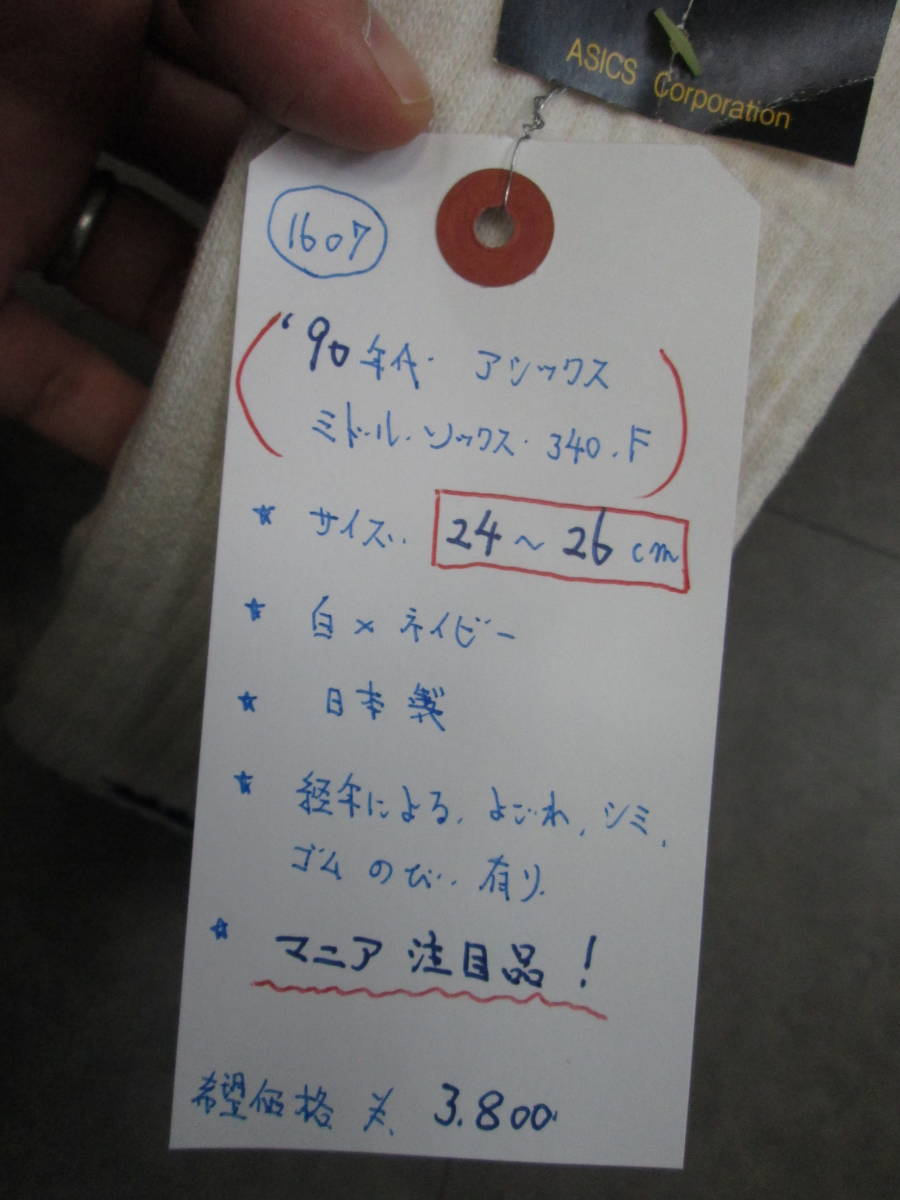 ASICS Corporation
1607
'90年代 アシックス
ミドル.ソックス.340.F
★ サイズ. 24~26cm
★ 白×ネイビー
★ 日本製
★ 経年による、よごれ、シミ、
ゴムのび.有り
★ マニア 注目品!
希望価格 ¥.3.800